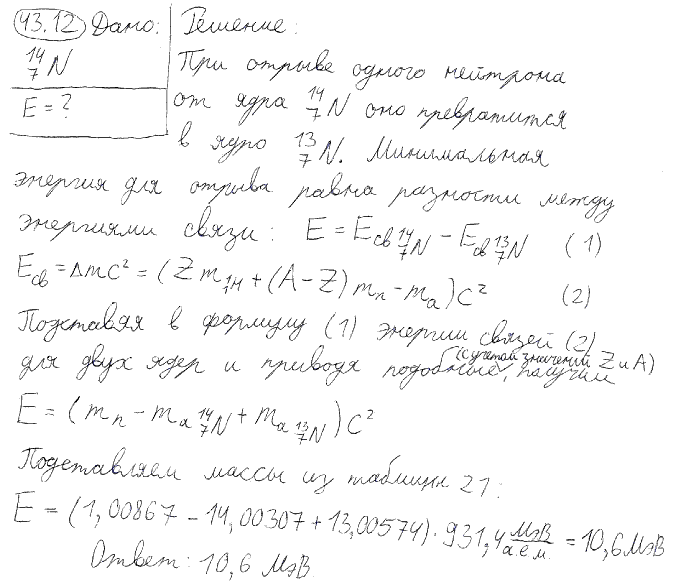 43.12 Дано: Решение:
¹⁴₇N
E = ?
При отрыве одного нейтрона
от ядра ¹⁴₇N оно превратится
в ядро ¹³₇N. Минимальная
энергия для отрыва равна разности между
энергиями связи: E = Eсв ¹⁴₇N − Eсв ¹³₇N (1)
Eсв = Δmc² = (Z m₁H + (A − Z) mn − ma) c² (2)
Подставляя в формулу (1) энергии связей (2)
(с учетом значений Z и A)
для двух ядер и приводя подобные, получим
E = (mn − ma ¹⁴₇N + ma ¹³₇N) c²
Подставляем массы из таблицы 21:
E = (1,00867 − 14,00307 + 13,00574) · 931,4 МэВ/а.е.м. = 10,6 МэВ
Ответ: 10,6 МэВ